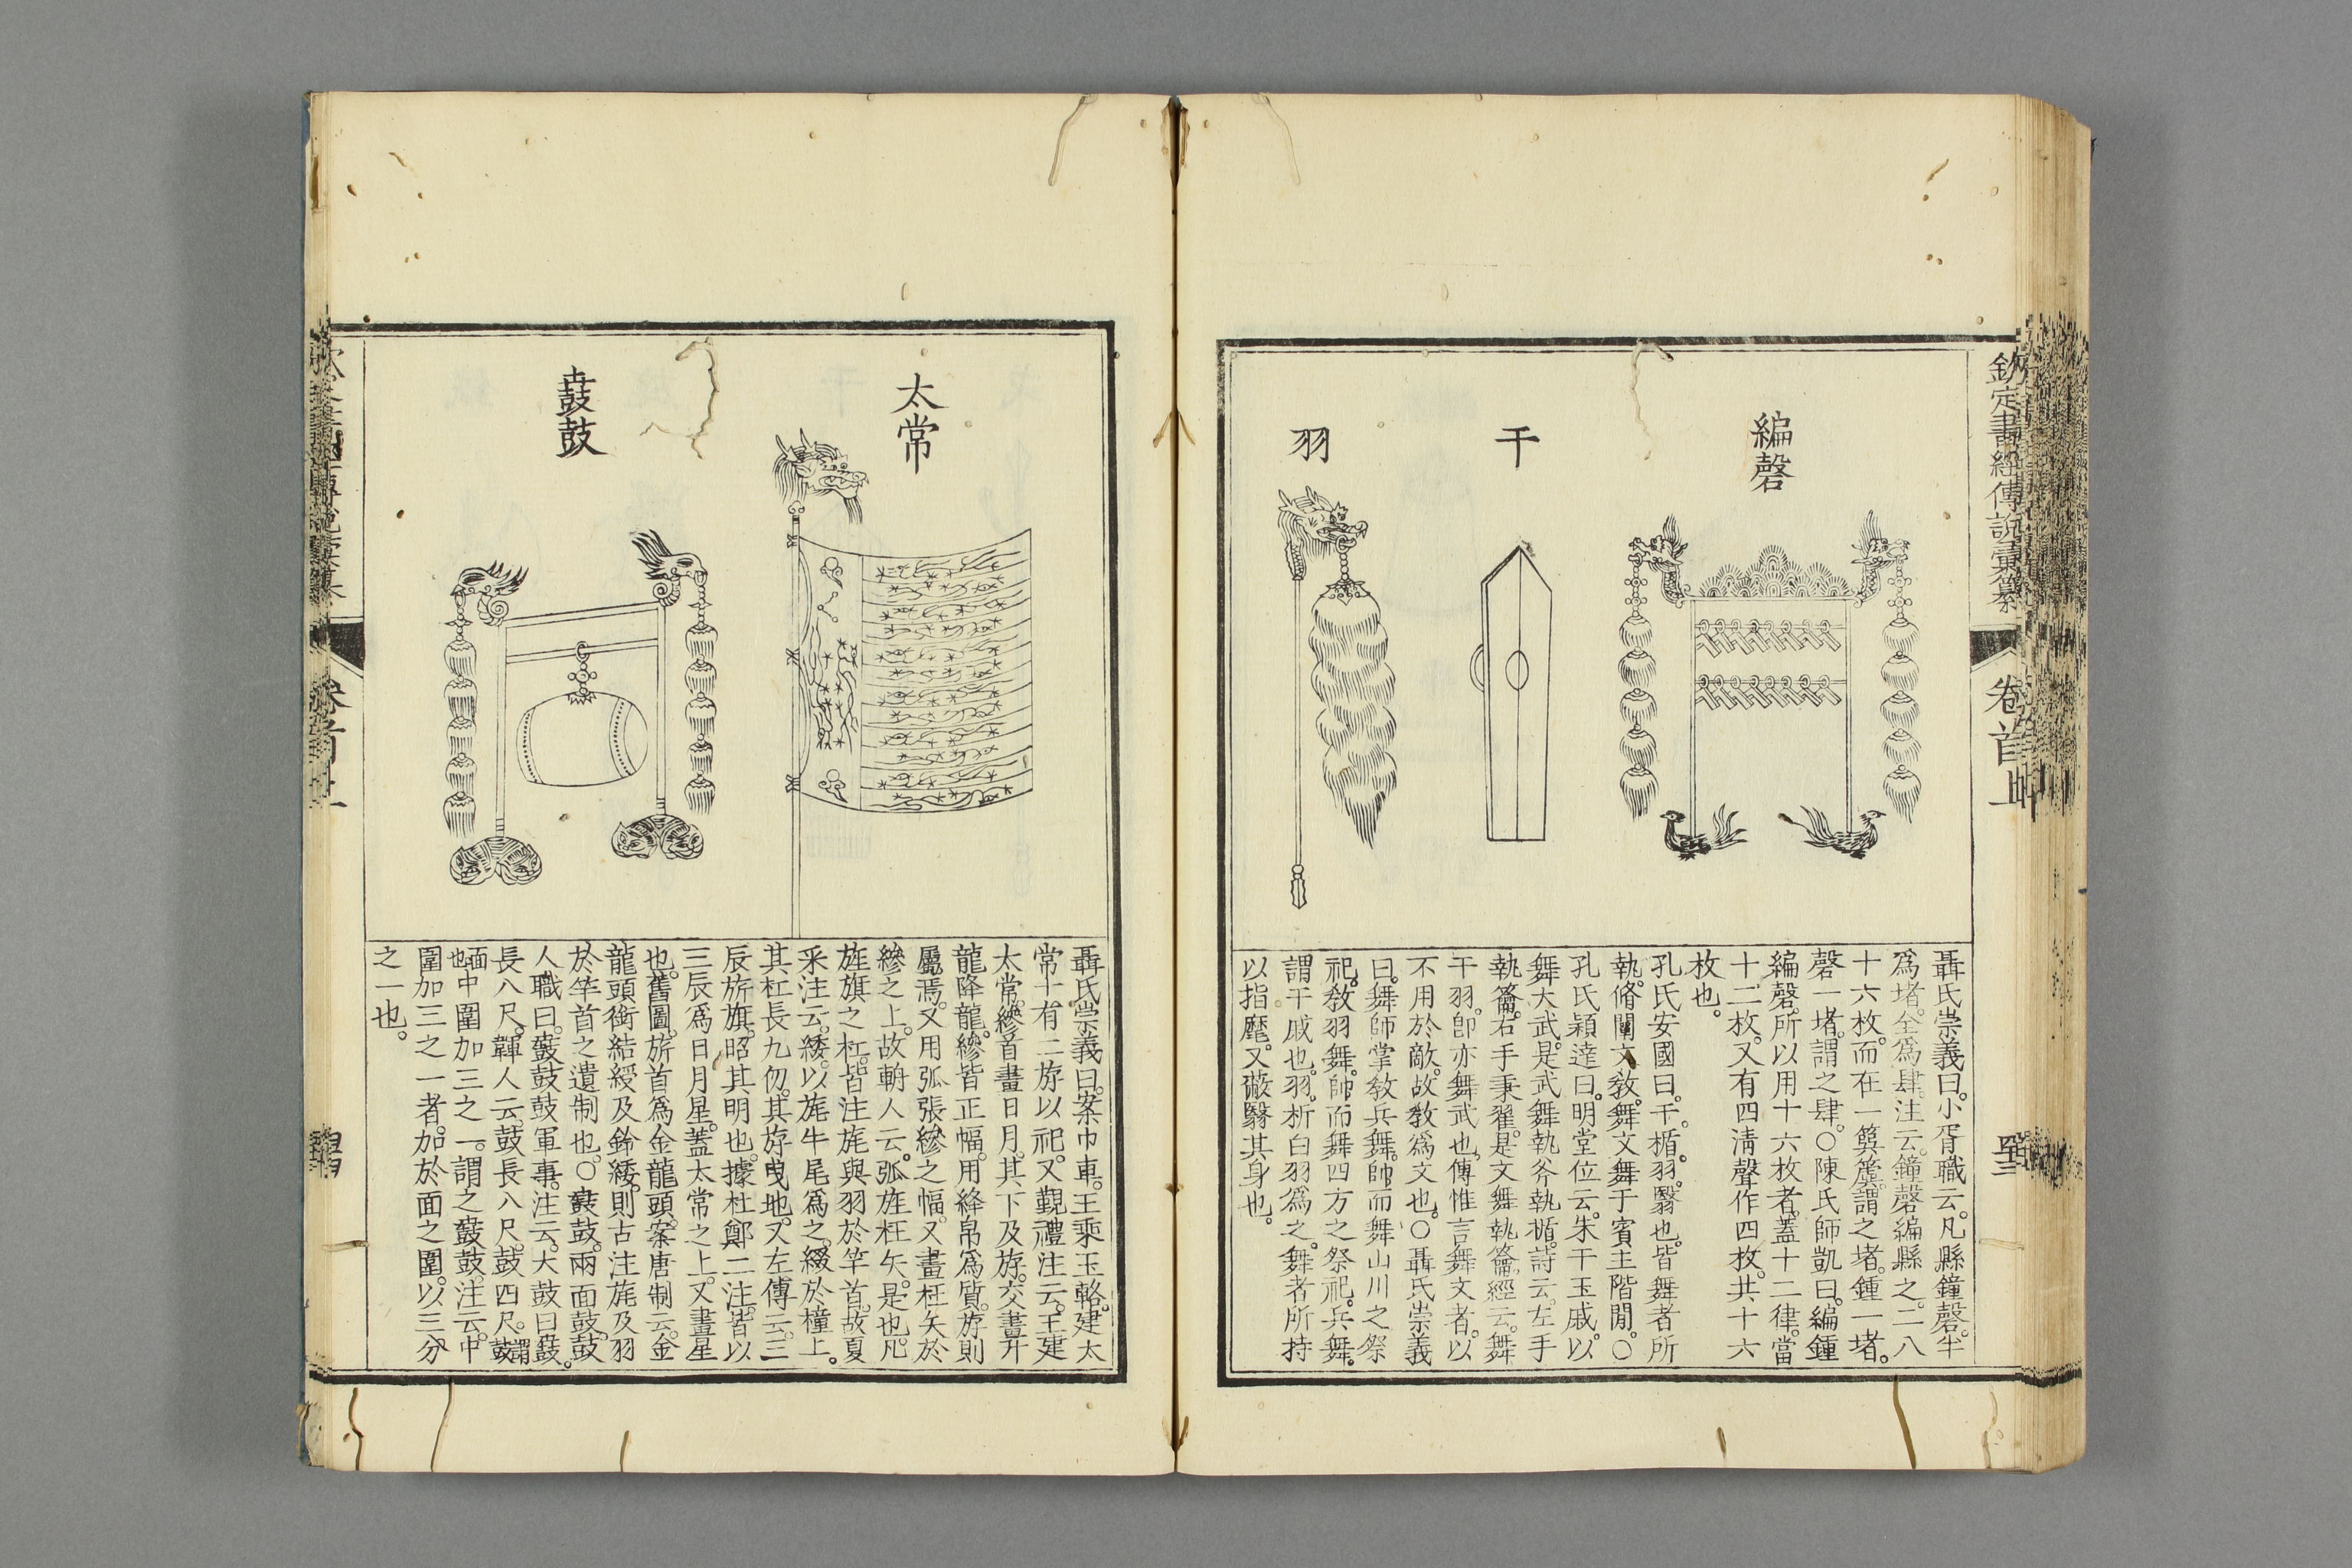 欽定書經傳說彙纂
卷首上
編磬
干
羽
聶氏崇義曰。小胥職云。凡縣鐘磬。半
爲堵。全爲肆。注云。鐘磬編縣之。二八
十六枚。而在一簨簴。謂之堵。鍾一堵。
磬一堵。謂之肆。〇陳氏師凱曰。編鍾
編磬。所以用十六枚者。蓋十二律。當
十二枚。又有四淸聲作四枚。共十六
枚也。
孔氏安國曰。干。楯。羽。翳也。皆舞者所
執。脩闡文敎。舞文舞于賓主階閒。〇
孔氏穎達曰。明堂位云。朱干玉戚。以
舞大武。是武舞執斧執楯。詩云。左手
執籥。右手秉翟。是文舞執籥。經云。舞
干羽。卽亦舞武也。傳惟言舞文者。以
不用於敵。故敎爲文也。〇聶氏崇義
曰。舞師掌敎兵舞。帥而舞山川之祭
祀。敎羽舞。帥而舞四方之祭祀。兵舞。
謂干戚也。羽。析白羽爲之。舞者所持
以指麾。又蔽翳其身也。
太常
鼖鼓
聶氏崇義曰。案巾車。王乘玉輅。建太
常十有二斿以祀。又覲禮注云。王建
太常。縿首畫日月。其下及斿。交畫升
龍降龍。縿皆正幅。用絳帛爲質。斿則
屬焉。又用弧張縿之幅。又畫枉矢於
縿之上。故輈人云。弧旌枉矢。是也。凡
旌旗之杠。皆注旄與羽於竿首。故夏
采注云。緌。以旄牛尾爲之。綴於橦上。
其杠長九仞。其斿曳地。又左傳云。三
辰旂旗。昭其明也。據杜鄭二注。皆以
三辰爲日月星。蓋太常之上。又畫星
也。舊圖。旂首爲金龍頭。案唐制云。金
龍頭銜結綬及鈴緌。則古注旄及羽
於竿首之遺制也。〇鼖鼓。兩面鼓。鼓
人職曰。鼖鼓鼓軍事。注云。大鼓曰鼖。
長八尺。韗人云。鼓長八尺。鼓四尺。謂鼓
面也中圍加三之一。謂之鼖鼓。注云。中
圍加三之一者。加於面之圍。以三分
之一也。